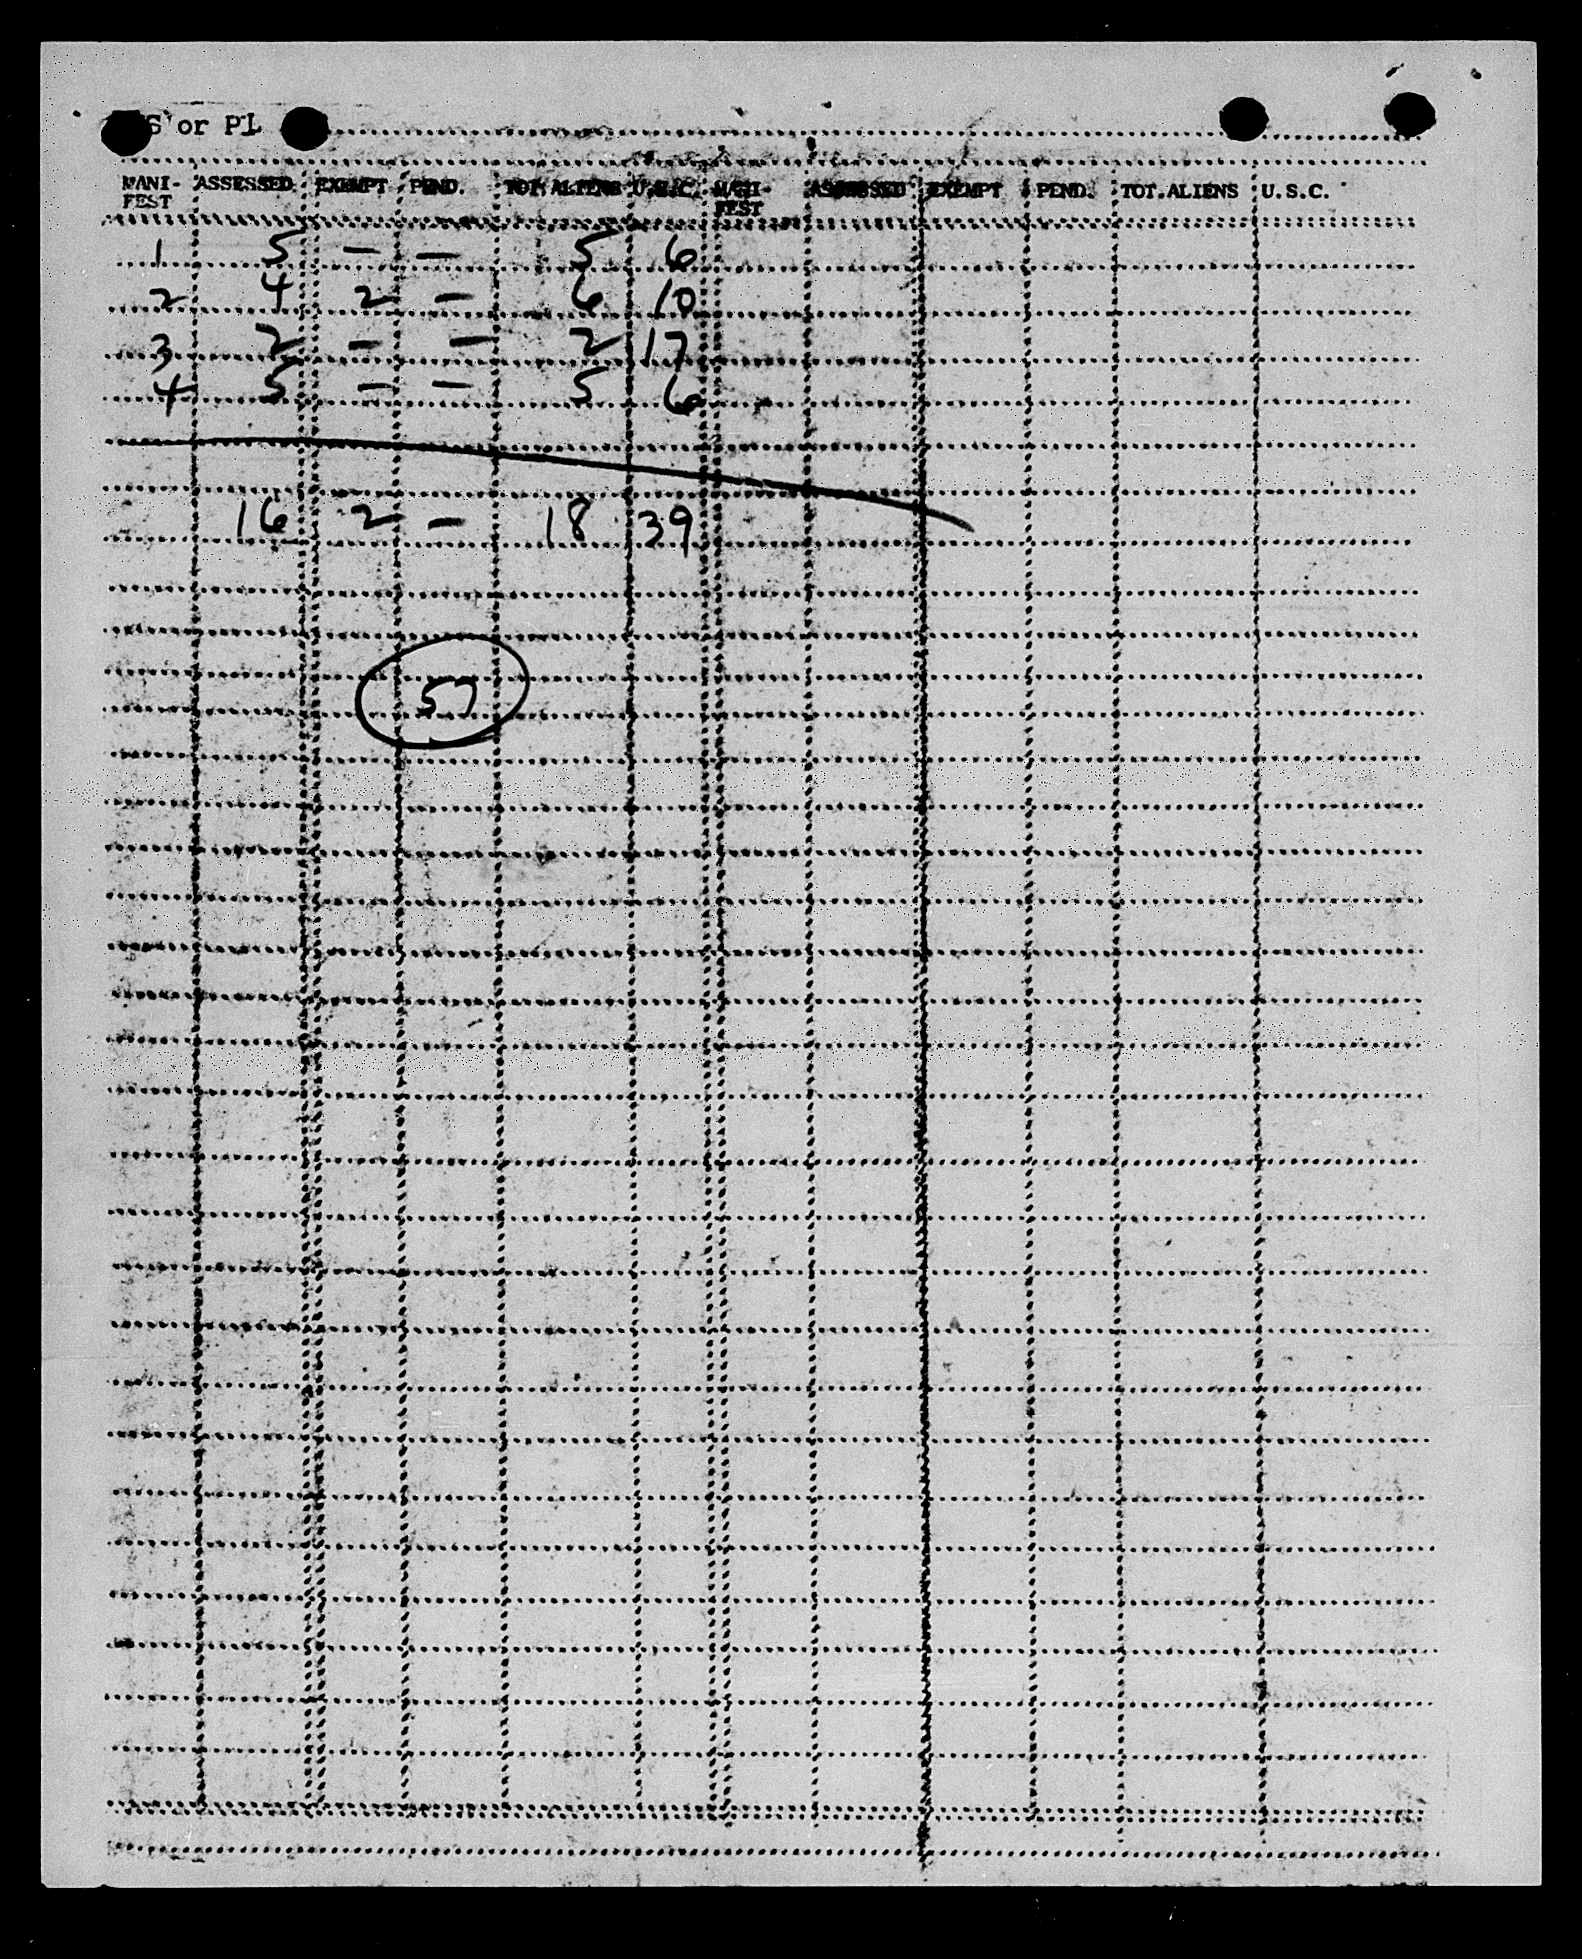 S or PL
MANI- ASSESSED EXEMPT PEND. TOT.ALIENS U.S.C. MANI- ASSESSED EXEMPT PEND. TOT.ALIENS U.S.C.
FEST FEST
1 5 — — 5 6
2 4 2 — 6 10
3 2 — — 2 17
4 5 — — 5 6
16 2 — 18 39
57